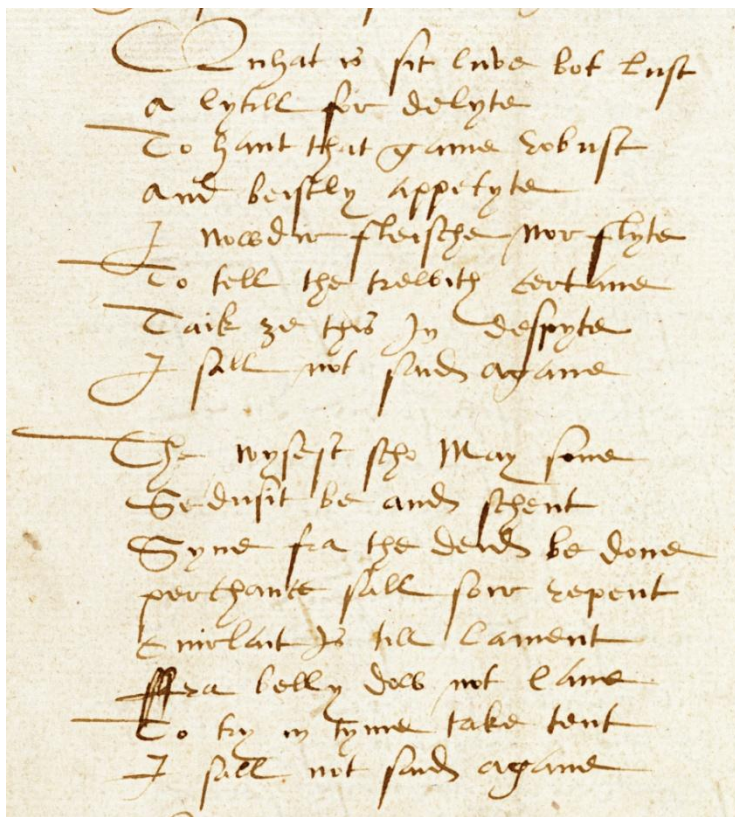 Quhat is sit luve bot lust
a lytill for delyte
To hant that game robust
and beistly appetyte
I nowdir fleische nor flyte
To tell the trewith certane
Taik ȝe this In despyte
I sall not said agane
The wysest scho May sone
Sedusit be and schent
Syne fra the deid be done
perchance sall soir repent
Ouirlait Is till lament
ffra belly dow not lane
To try in tyme take tent
I sall not said agane